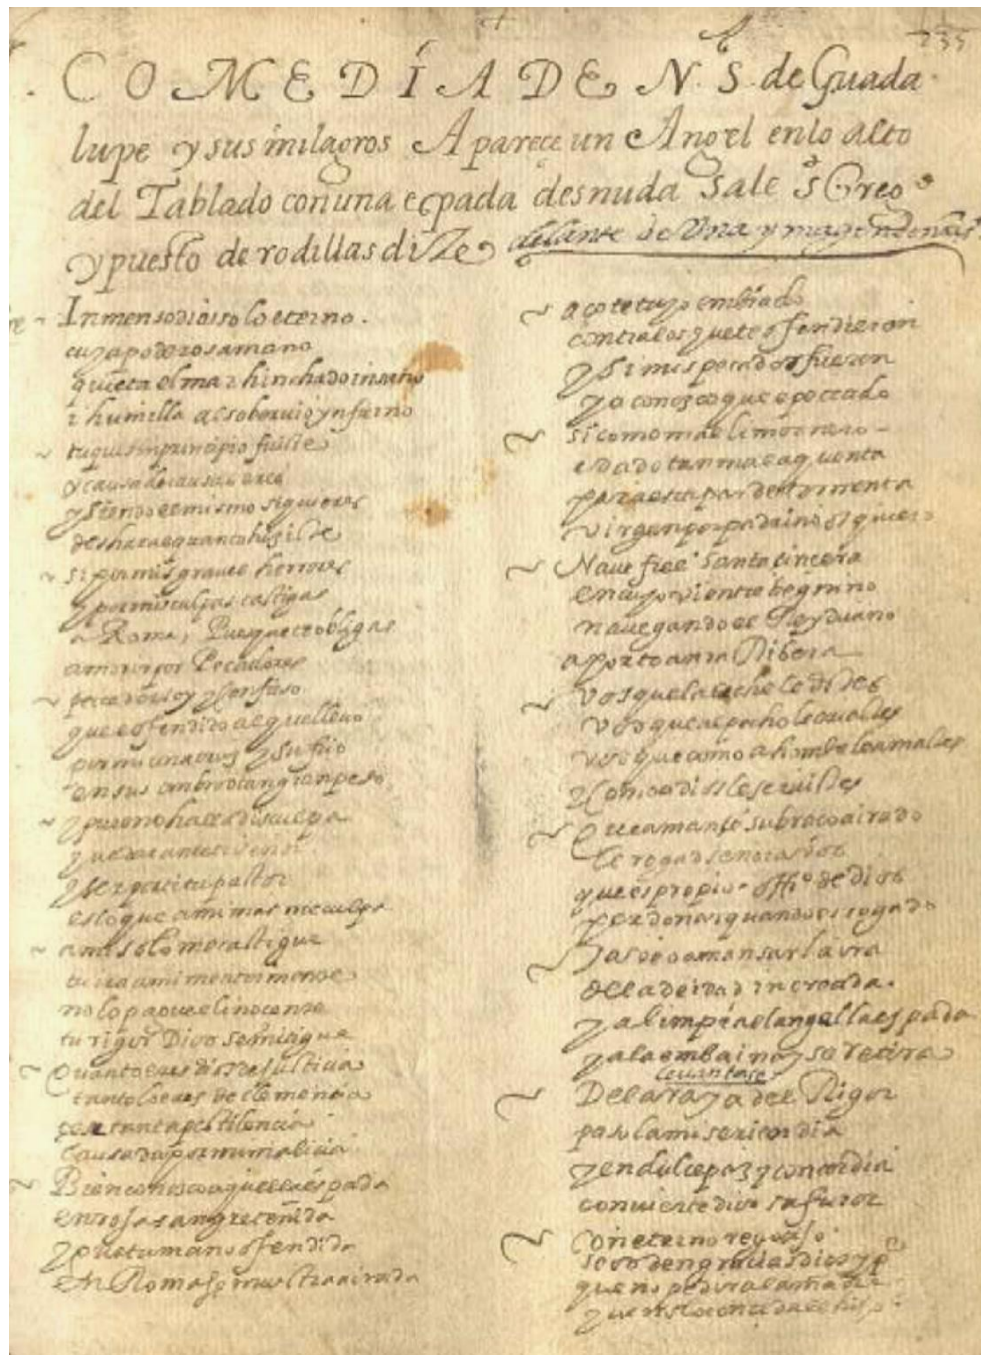 235
COMEDÍA DE N. S.ª de Guada
lupe y sus milagros Aparece un Angel en lo alto
del Tablado con una espada desnuda sale s Greg
y puesto de rodillas dize delante de Una ymagen
Inmenso dios solo eterno.
cuya poderosa mano
quieta el mar hinchado insano
i humilla al soberuio ynfierno
tu que sin principio fuiste
y causa de causas eres
y siendo el mismo si quieres
desharas quanto hisiste
si por mis graues herrores
y por mis culpas castigas
a Roma, Pues que te obligas
a morir por Pecadores
pecador soy y confieso
que e ofendido a aquel
por mi una cruz y sufrio
en sus ombros tan gran peso
y pues no hallo disculpa
que dar ante ti señor
y ser por ti tu pastor
es lo que a mi mas me culpa
a mi solo me castigue
tu ira a mi me atormente
no lo pague el inocente
tu rigor Dios se mitigue
Quanto eres dios de justicia
tanto lo eres de clemencia
tanta pestilencia
causada por mi malicia
Bien conosco aquella espada
en roja sangre teñida
y que tu mano ofendida
en Roma muestra airada
açote tuyo embiado
contra los que te ofendieron
y si mis pecados fueron
yo conosco que e peccado
si como mal limosnero
e dado tan mala quenta
para escapar de tormenta
virgen por padrino os quiero
Naue fiel santa sincera
en cuyo vientre begnino
nauegando el Rey diuino
aporto a nra Ribera
vos que la leche le distes
vos que al pecho le
vos que como a hombre le amastes
y como a dios le seruistes
Que amanse su braço airado
le rogad señora
que es propio offi.º de dios
perdonar quando es rogado
la yra
de la deidad increada.
ya limpia el angel la espada
ya la embaina y se retira
leuantase
De la raya del Rigor
paso la misericordia
y en dulce paz y concordia
conuierte dios su furor
Con eterno regosijo
se os den gracias dios y
que no pedira la madre